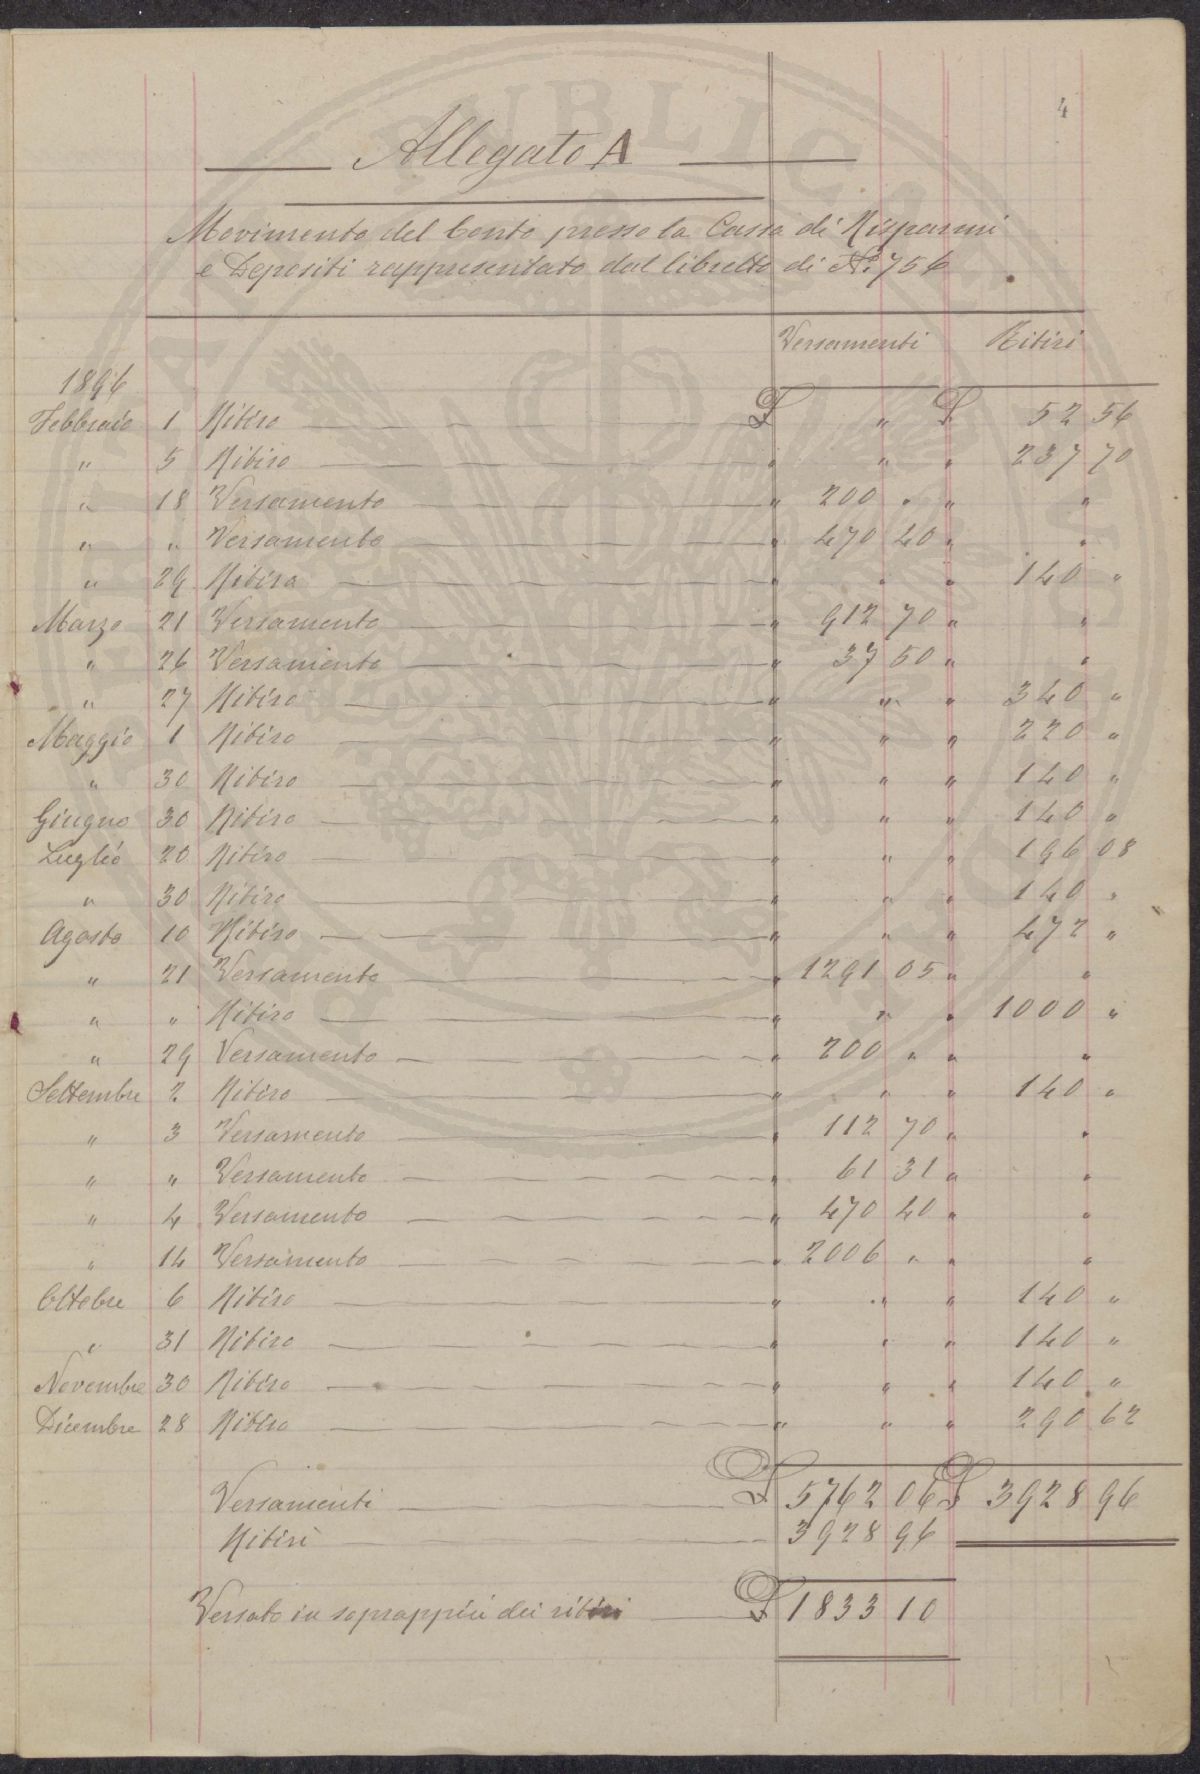 4
Allegato A
Movimento del Conto presso la Cassa di Risparmi
e Depositi rappresentato dal libretto di No. 756
Versamenti Ritiri
1896
Febbraio 1 Ritiro £ " £ 52 56
" 5 Ritiro " " " 237 70
" 18 Versamento " 200 " " "
" " Versamento " 470 40 " "
" 29 Ritiro " " " 140 "
Marzo 21 Versamento " 912 70 " "
" 26 Versamento " 37 50 " "
" 27 Ritiro " " " 340 "
Maggio 1 Ritiro " " " 220 "
" 30 Ritiro " " " 140 "
Giugno 30 Ritiro " " " 140 "
Luglio 20 Ritiro " " " 196 08
" 30 Ritiro " " " 140 "
Agosto 10 Ritiro " " " 472 "
" 21 Versamento " 1291 05 " "
" " Ritiro " " " 1000 "
" 29 Versamento " 200 " " "
Settembre 2 Ritiro " " " 140 "
" 3 Versamento " 112 70 " "
" " Versamento " 61 31 " "
" 4 Versamento " 470 40 " "
" 14 Versamento " 2006 " " "
Ottobre 6 Ritiro " " " 140 "
" 31 Ritiro " " " 140 "
Novembre 30 Ritiro " " " 140 "
Dicembre 28 Ritiro " " " 290 62
Versamenti £ 5762 06 £ 3928 96
Ritiri 3928 96
Versato in soprappiù dei ritiri £ 1833 10